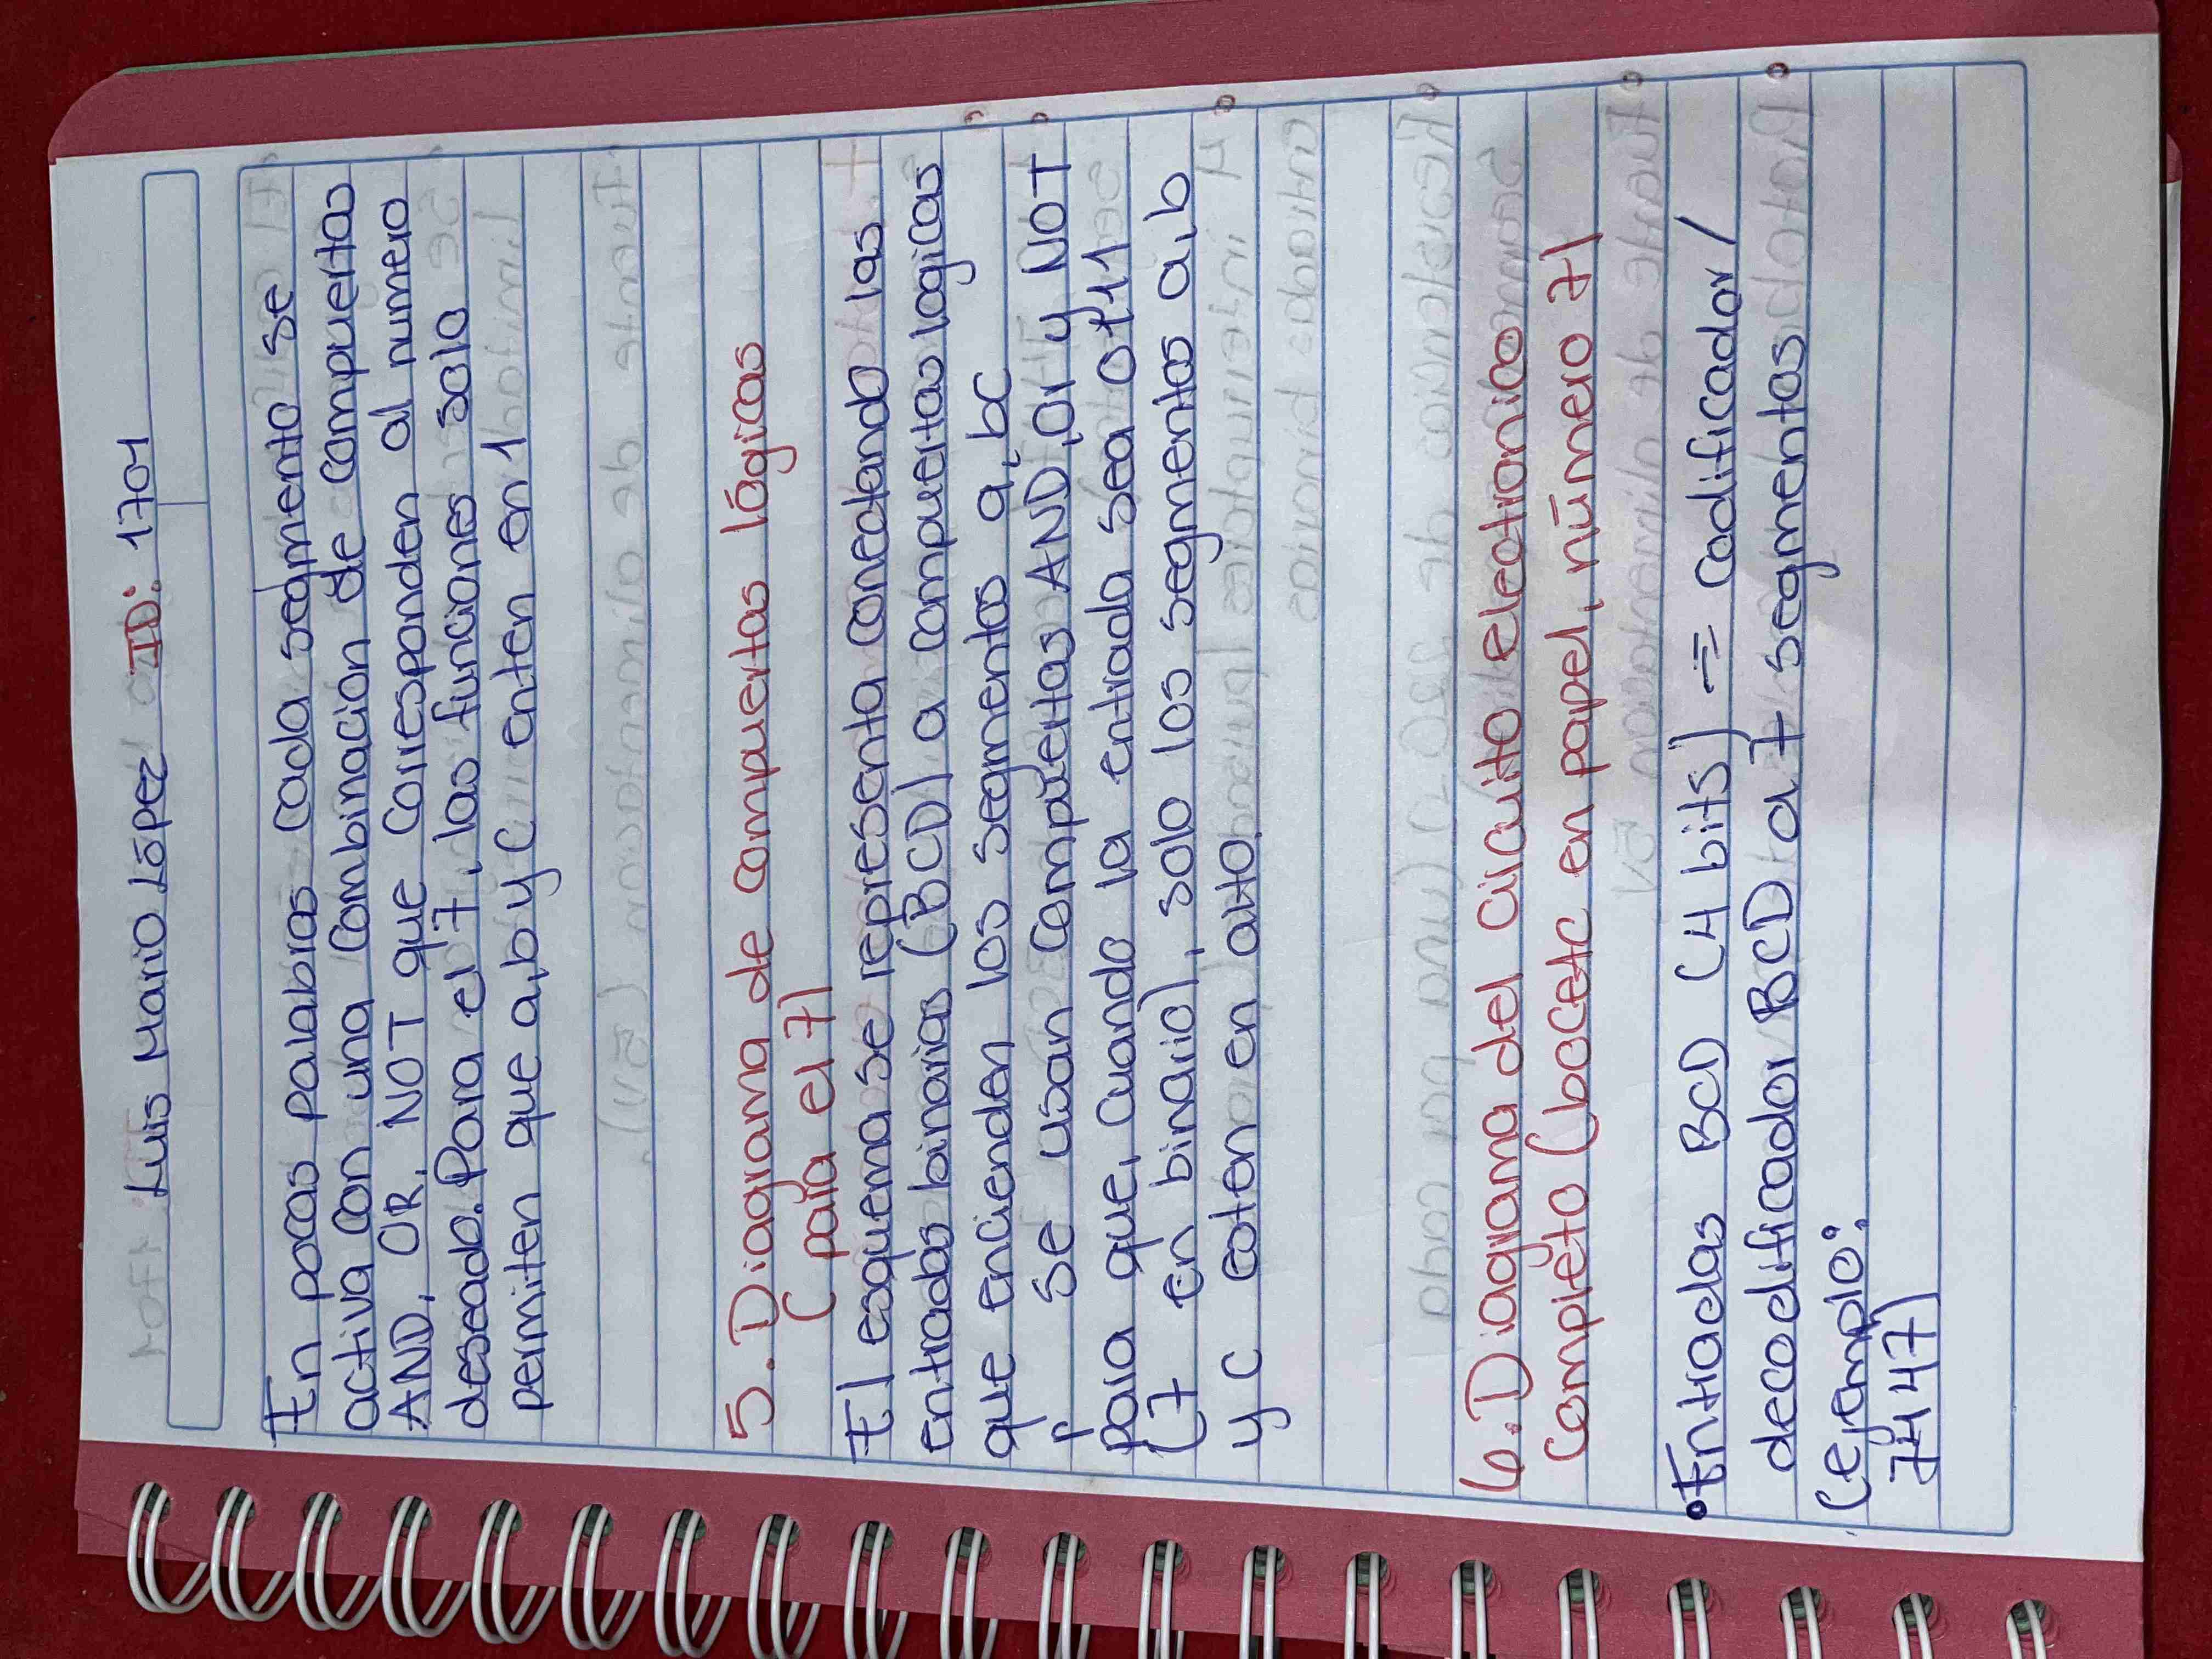 Luis Mario López ID: 1701
En pocas palabras cada segmento se
activa con una combinación de compuertas
AND, OR, NOT que corresponden al numero
deseado. Para el 7, las funciones solo
permiten que a,b y C enten en 1
5. Diagrama de compuertas lógicas
( para el 7)
El esquema se representa conectando las
entradas binarias (BCD) a compuertas logicas
que encienden los segmentos a, bc
se usan compuertas AND, or y NOT
para que, cuando la entrada sea 0111
(7 en binario), solo los segmentos a,b
y c esten en alto.
6. Diagrama del circuito electronico
completo (boceto en papel, número 7)
• Entradas BCD (4 bits) → codificador /
decodificador BCD a 7 segmentos
(ejemplo:
7447)